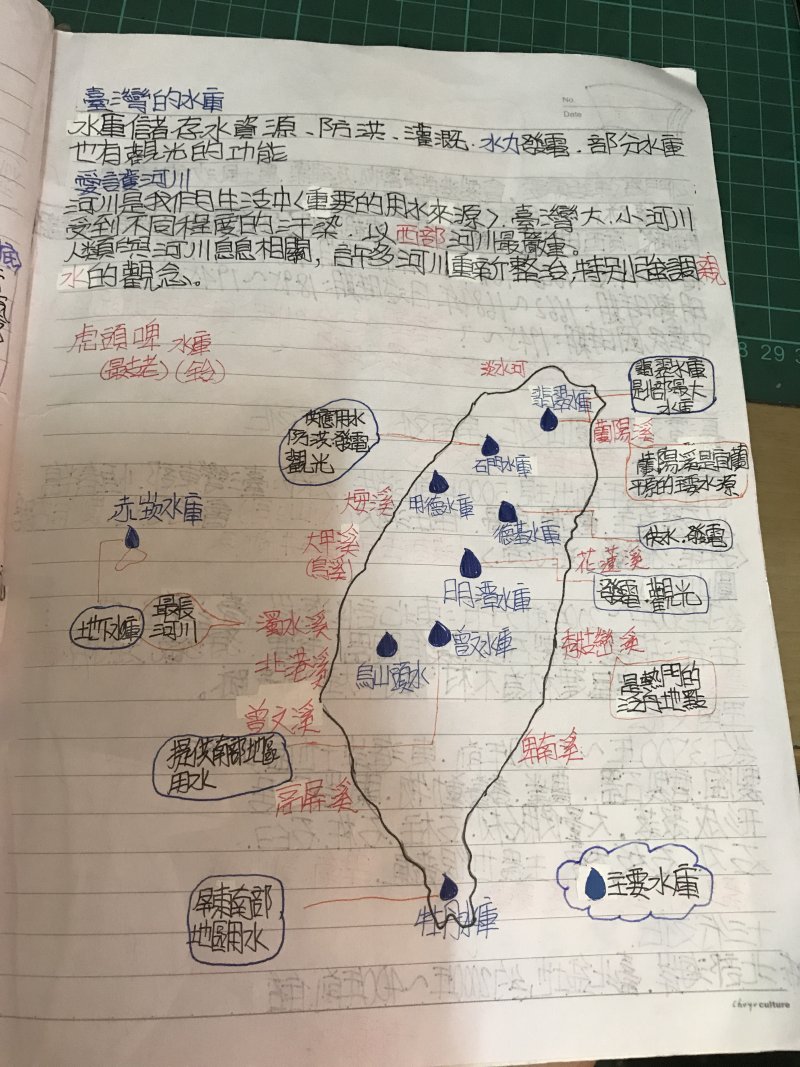 No.
Date
臺灣的水庫
水庫儲存水資源、防洪、灌溉、水力發電、部分水庫
也有觀光的功能
愛護河川
河川是我們日生活中〈重要的用水來源〉臺灣大、小河川
受到不同程度的汙染，以西部河川最嚴重。
人類與河川息息相關，許多河川重新整治，特別強調親
水的觀念。
虎頭啤 水庫
(最老)
淡水河
翡翠水庫
是北部最大
水庫
翡翠水庫
蘭陽溪
供應用水
防洪、發電
觀光
石門水庫
蘭陽溪是宜蘭
平原的主要水源
大安溪
赤崁水庫
德基水庫
供水、發電
大甲溪
(烏溪)
花蓮溪
明潭水庫
發電、觀光
地下水庫
最長
河川
濁水溪
曾文水庫
秀姑巒溪
北港溪
烏山頭水
最熱門的
泛舟地點
曾文溪
提供南部地區
用水
卑南溪
高屏溪
屏東南部
地區用水
牡丹水庫
主要水庫
culture